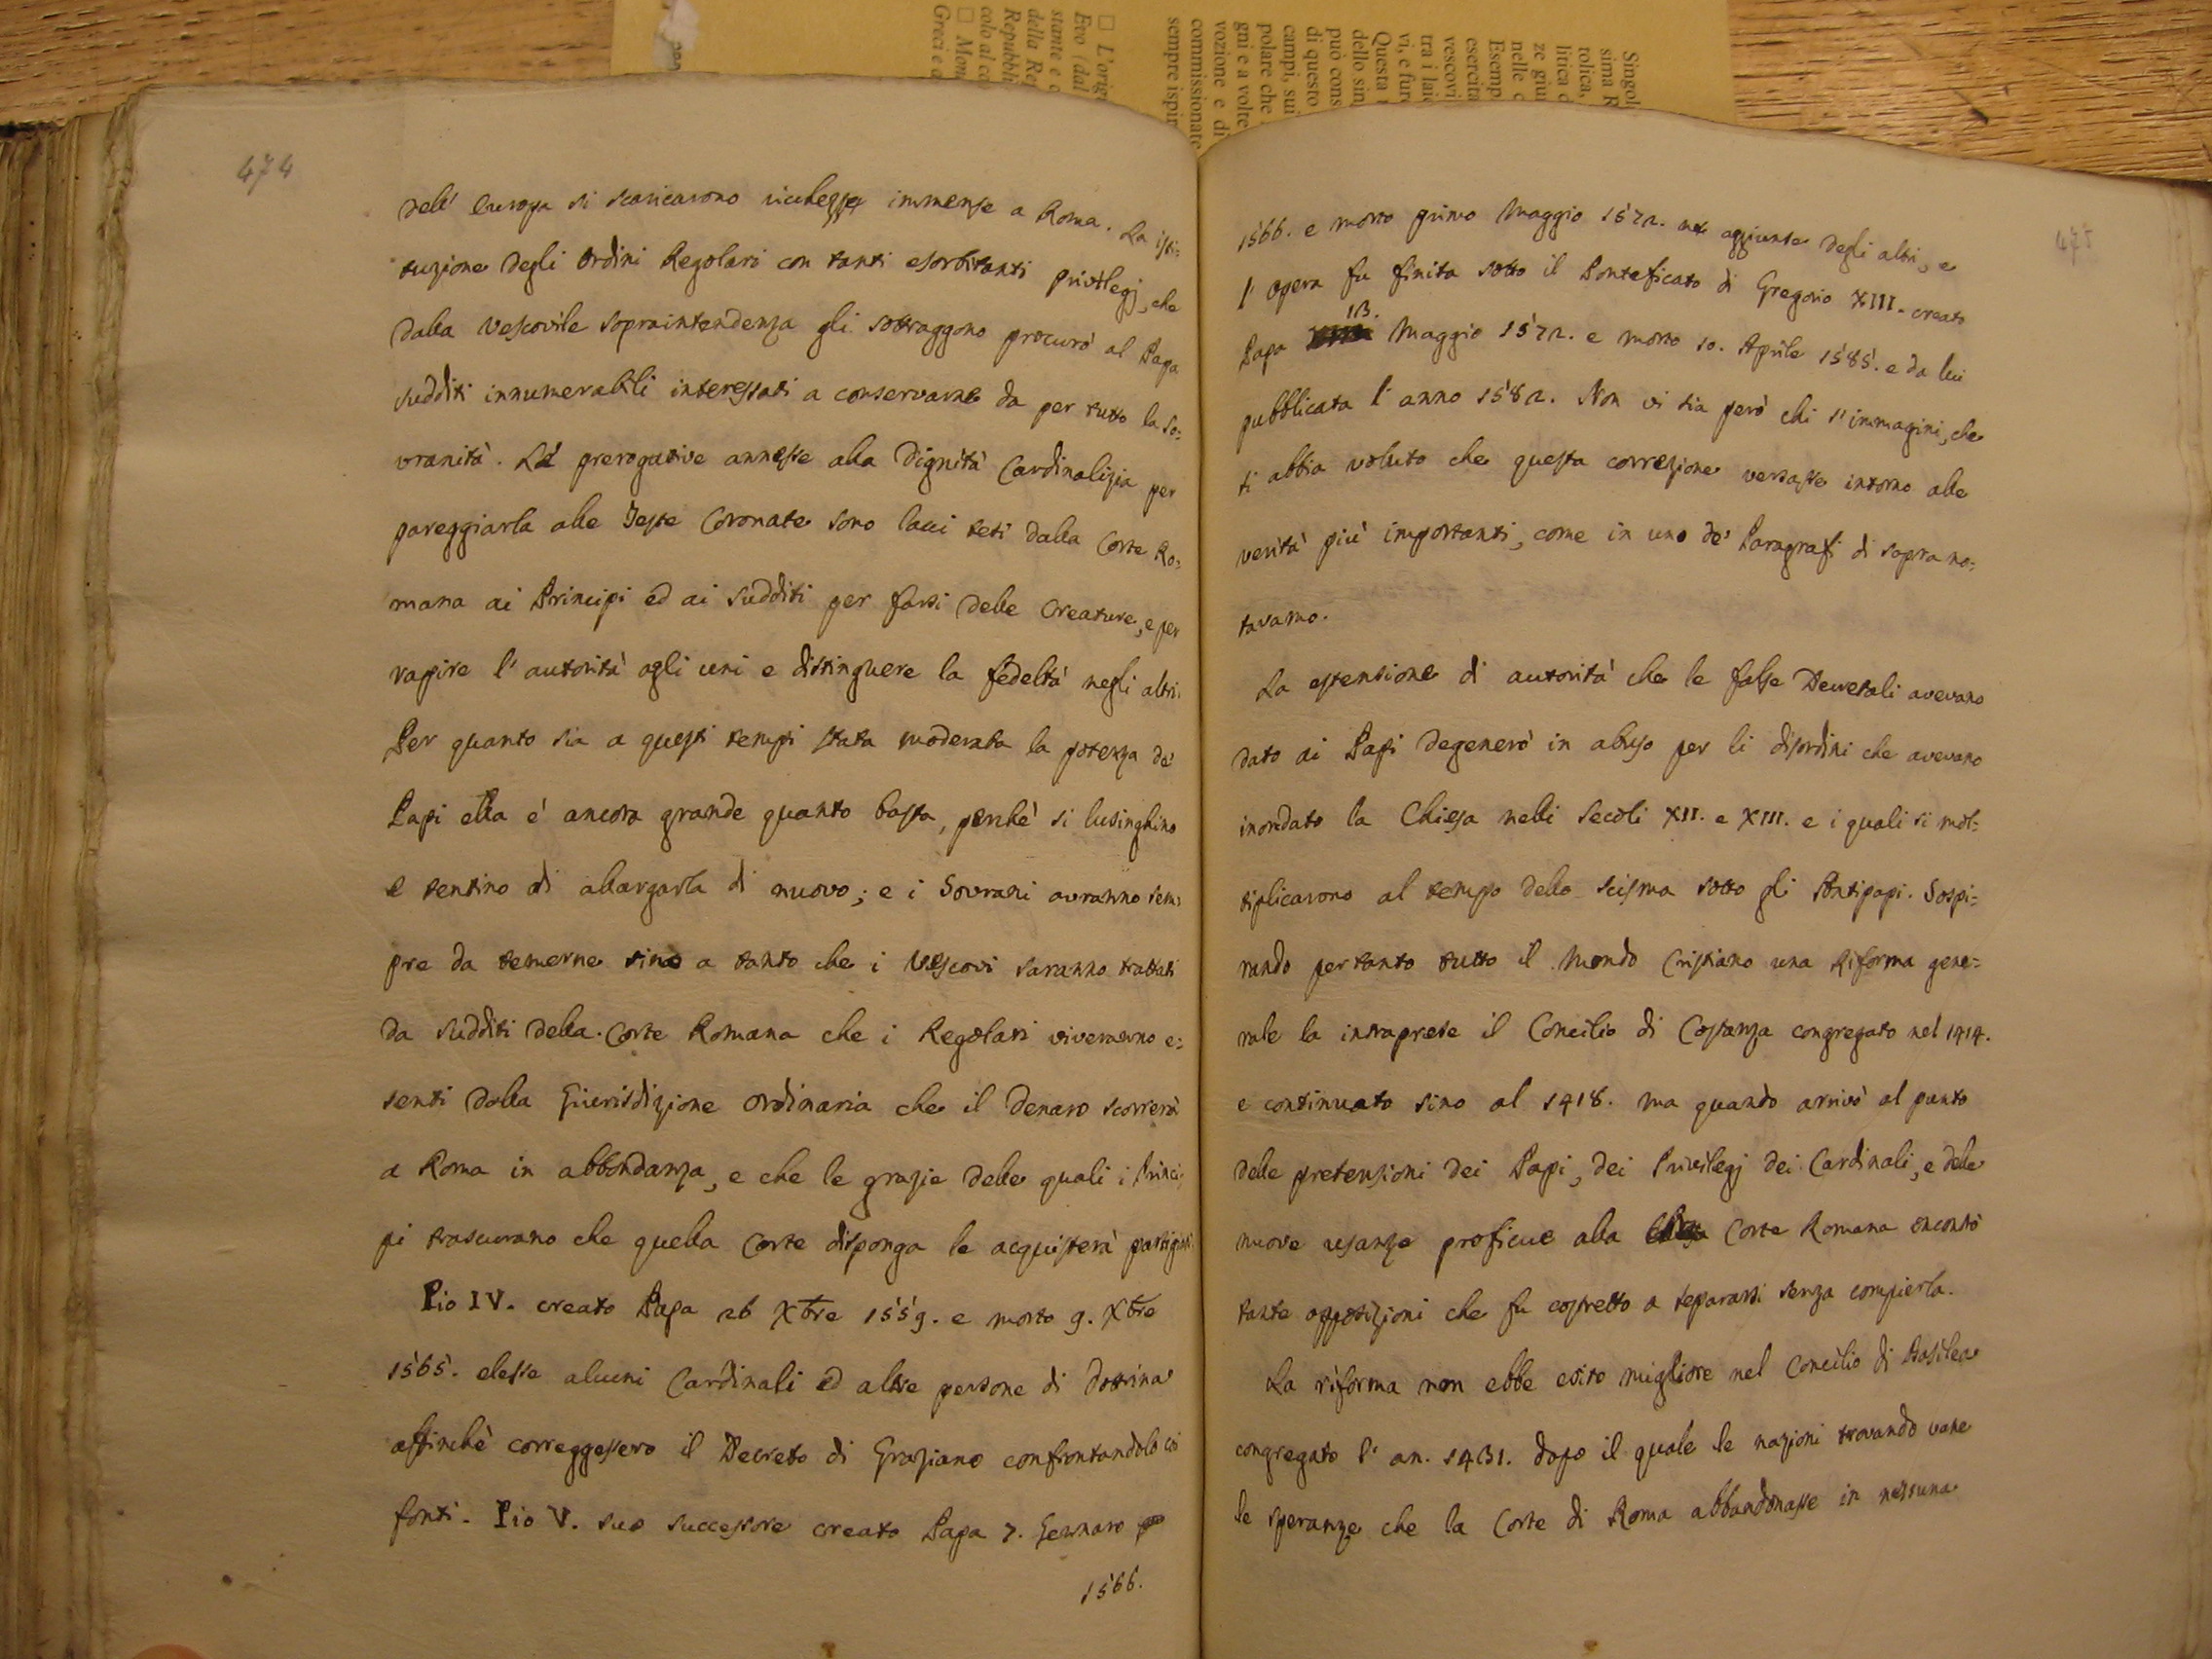 474
dell' Europa si scaricarono ricchezze immense a Roma. La isti=
tuzione degli Ordini Regolari con tanti esorbitanti privilegj, che
dalla Vescovile sopraintendenza gli sottraggono procurò al Papa
sudditi innumerabili interessati a conservarne da per tutto la so=
vranità. Le prerogative annesse alla Dignità Cardinalizia per
pareggiarla alle Teste Coronate sono lacci tesi dalla Corte Ro=
mana ai Principi ed ai sudditi per farsi delle Creature, e per
rapire l'autorità agli uni e distinguere la fedeltà negli altri.
Per quanto sia a questi tempi stata moderata la potenza de'
Papi ella è ancora grande quanto basta, perchè si lusinghino
e tentino di allargarla di nuovo; e i Sovrani avranno sem=
pre da temerne sino a tanto che i Vescovi saranno trattati
da sudditi della Corte Romana che i Regolari viveranno e=
senti dalla Giurisdizione ordinaria che il denaro scorrerà
a Roma in abbondanza, e che le grazie delle quali i Princi=
pi trascurano che quella Corte disponga le acquisterà partigiani
Pio IV. creato Papa 26 Xbre 1559. e morto 9. Xbre
1565. elesse alcuni Cardinali ed altre persone di dottrina
affinchè correggessero il Decreto di Graziano confrontandolo coi
fonti. Pio V. suo successore creato Papa 7. Gennaro
1566.
475
1566. e morto primo Maggio 1572. ne aggiunse degli altri, e
l'opera fu finita sotto il Ponteficato di Gregorio XIII. creato
13.
Papa Maggio 1572. e morto 10. Aprile 1585. e da lui
pubblicata l'anno 1582. Non vi sia però chi s'immagini, che
si abbia voluto che questa correzione versasse intorno alle
verità più importanti, come in uno de' Paragrafi di sopra no=
tavamo.
La estensione di autorità che le false Decretali avevano
dato ai Papi degenerò in abuso per li disordini che avevano
inondato la Chiesa nelli Secoli XII. e XIII. e i quali si mol=
tiplicarono al tempo dello scisma sotto gli Antipapi. Sospi=
rando pertanto tutto il Mondo Cristiano una Riforma gene=
rale la intraprese il Concilio di Costanza congregato nel 1414.
e continuato sino al 1418. ma quando arrivò al punto
delle pretensioni dei Papi, dei Privilegj dei Cardinali, e delle
nuove usanze proficue alla Corte Romana incontò
tante opposizioni che fu costretto a separarsi senza compierla.
La riforma non ebbe esito migliore nel Concilio di Basilea
congregato l'an. 1431. dopo il quale le nazioni trovando vane
le speranze che la Corte di Roma abbandonasse in nessuna
Singol
sima R
tolica,
litica d
ze giu
nelle c
Esemp
esercita
vescovi
tra i laic
vi, e fur
Questa
dello sin
può cons
di questo
campi, sui
polare che
gni e a volte
vozione e di
commissionate
sempre ispir
□ L'orig
Evo (dal
stante e c
della Re
Repubbli
colo al co
□ Mon
Greci e